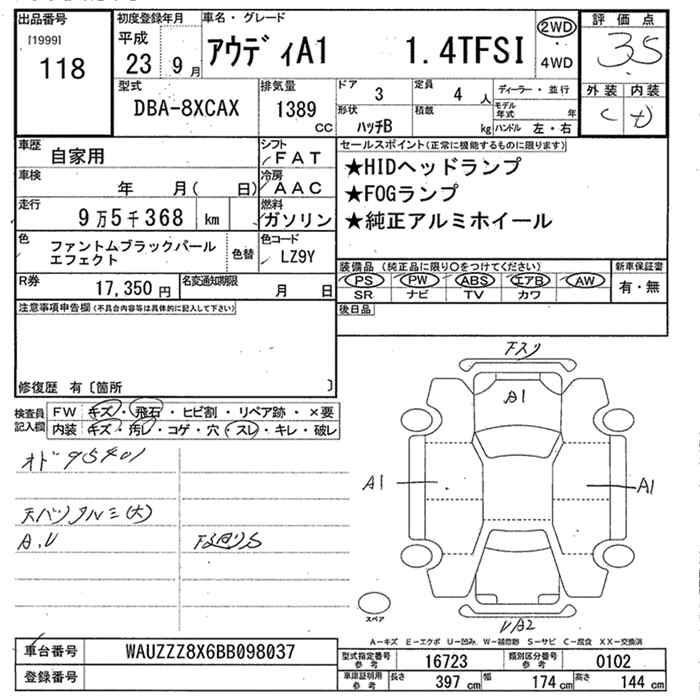 出品番号 初度登録年月 車名・グレード 評価点
[1999] 118 平成 23 9月 アウディA1 1.4TFSI 2WD・4WD 3S
外装 内装
C
型式 排気量 ドア 定員 ディーラー・並行
DBA-8XCAX 1389 CC 3 4 人 モデル年式 年
形状 積載
ハッチB kg ハンドル 左・右
車歴 自家用 シフト FAT セールスポイント(正常に機能するものに限ります)
車検 年 月( 日) 冷房 AAC ★HIDヘッドランプ
★FOGランプ
走行 9万5千368 km 燃料 ガソリン ★純正アルミホイール
色 ファントムブラックパールエフェクト 色替 色コード LZ9Y
装備品(純正品に限り○をつけてください) 新車保証書
R券 17,350円 名変通知期限 月 日 PS PW ABS エアB AW 有・無
SR ナビ TV カワ
注意事項申告欄(不具合内容等は具体的に記入して下さい) 後日品
修復歴 有〔箇所 〕
検査員記入欄 FW キズ・飛石・ヒビ割・リペア跡・×要
内装 キズ・汚レ・コゲ・穴・スレ・キレ・破レ
オド 95401
天バリ アルミ(大)
A.U
A1
A1 A1
スペア UA2
A−キズ E−エクボ U−凹み W−補修跡 S−サビ C−腐食 XX−交換済
車台番号 WAUZZZ8X6BB098037 型式指定番号 参考 16723 類別区分番号 参考 0102
登録番号 車庫証明用 参考 長さ 397 cm 幅 174 cm 高さ 144 cm